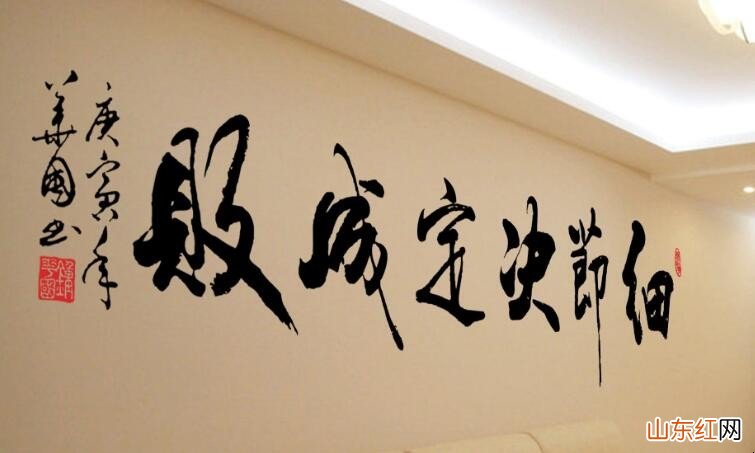 细節决定成败
庚寅年
华國书
山东红网